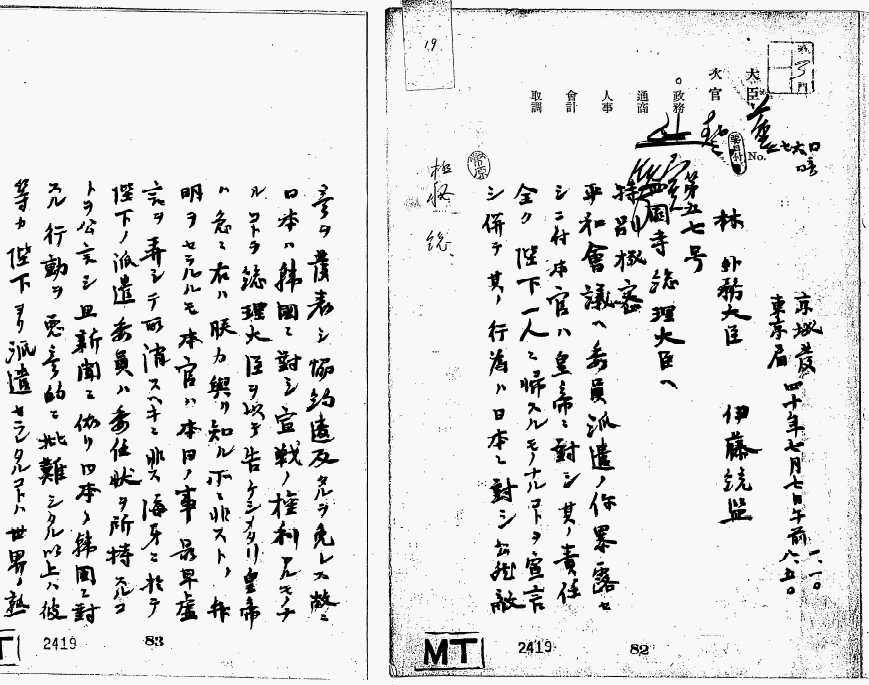 19
大臣
次官
政務
通商
人事
會計
取調
No.
京城發 四十年七月七日午前 一、一〇
東京着 八、五〇
林 外務大臣 伊藤統監
第五七号
西園寺總理大臣ヘ
特別極密
平和會議ヘ委員派遣ノ件暴露セ
シニ付本官ハ皇帝ニ對シ其ノ責任
全ク 陛下一人ニ帰スルモノナルコトヲ宣言
シ併テ其ノ行為ハ日本ニ對シ公然敵
MT 2419 82
意ヲ發表シ協約違反タルヲ免レス故ニ
日本ハ韓國ニ對シ宣戰ノ権利アルモノナ
ルコトヲ總理大臣ヲ以テ告ケシメタリ皇帝
ハ急ニ右ハ朕カ與リ知ル所ニ非ストノ弁
明ヲセラルルモ本官ハ本日ノ事最早虚
言ヲ弄シテ取消スヘキニ非ス海牙ニ於テ
陛下ノ派遣委員ハ委任状ヲ所持スルコ
トヲ公言シ且新聞ニ依リ日本ノ韓國ニ對
スル行動ヲ悪意的ニ批難シタル以上ハ彼
等カ陛下ヨリ派遣セラレタルコトハ世界ノ熟
2419 83